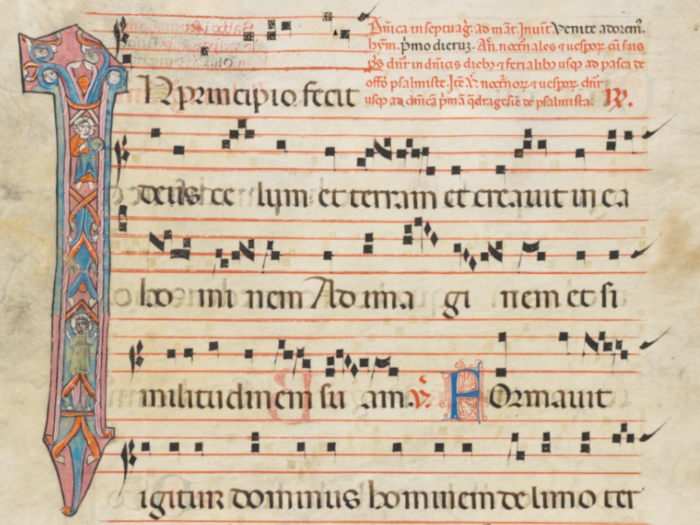 Dñica in septuag̃. ad mat̃. Inuit̃. Venite adorem̃.
hym̃. p̾mo dieruz. Añ. noct̃nales ⁊ uesꝑoꝝ cũ suis
ps̃. dñr in dñicis dieb₉ ⁊ ferialib₉ usq₃ ad pasca de
offõ psalmiste. Ite ℣. noct̃noꝝ ⁊ uesꝑoꝝ dñr
usq₃ ad dñicã p̾mã q̃dragesie de psalmista. ℟.
IN principio fecit
deus ce lum et terram et creauit in ea
ho mi nem Ad ima gi nem et si
militudinem su am. ℣. Formauit
igitur dominus hominem de limo ter